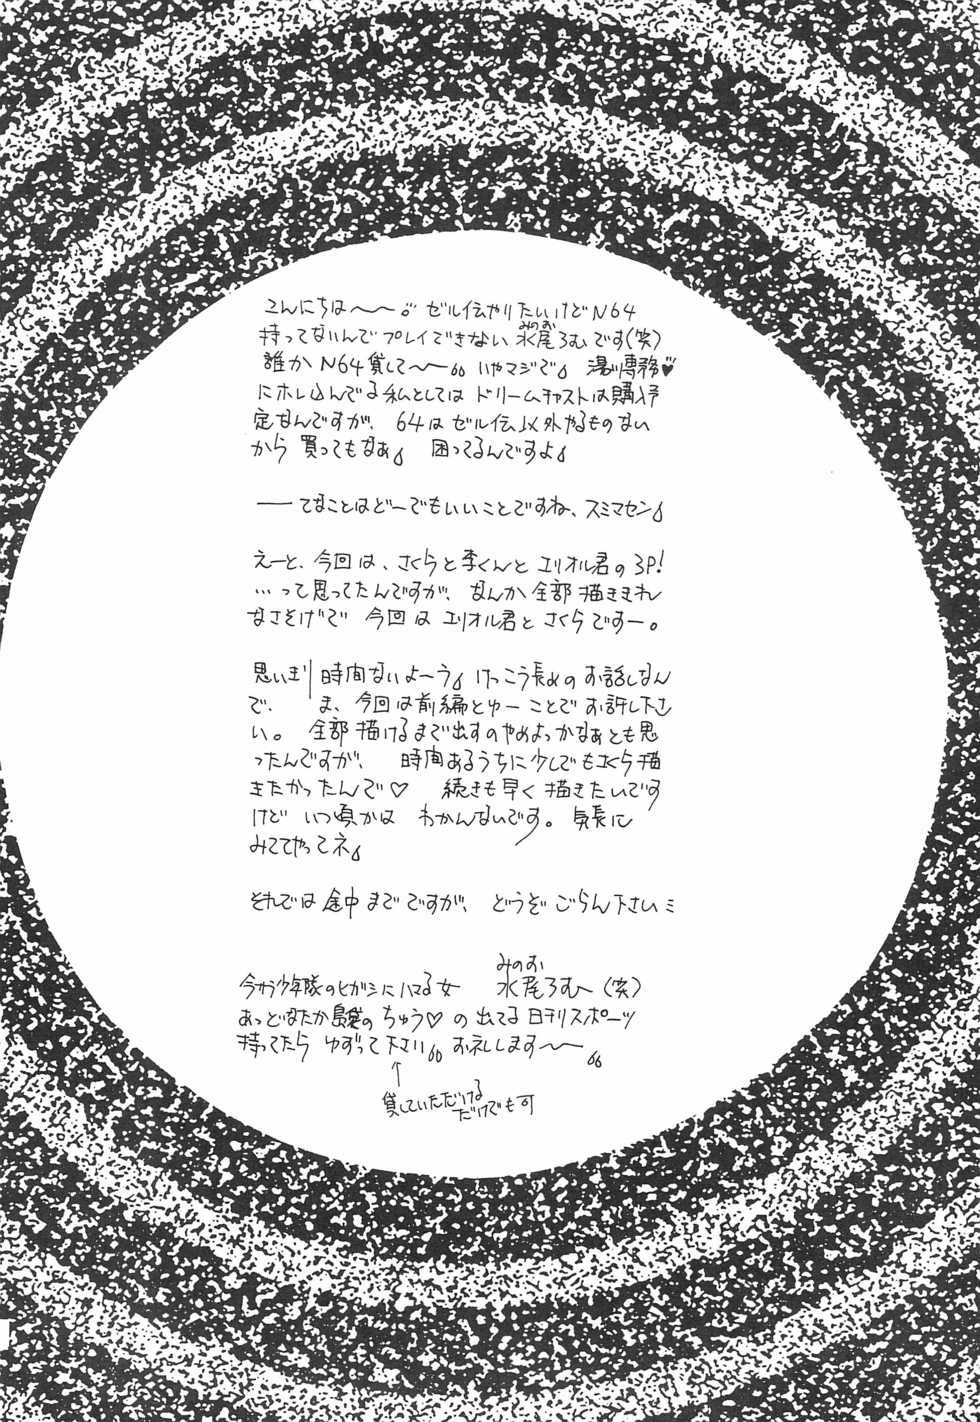 こんにちは〜〜 ゼル伝やりたいけどN64
持ってないんでプレイできない水尾ろむです(笑)
みのお
誰か N64貸して〜〜 いやマジで 湯川専務♥
にホレ込んでる私としては ドリームキャストは購入予
定なんですが、64は ゼル伝以外やるものない
から 買ってもなぁ 困ってるんですよ
――てなことはどーでもいいことですね、スミマセン
えーと、今回は、さくらと李くんと エリオル君の3P!
…って思ってたんですが、なんか全部描ききれ
なさそげで 今回は エリオル君と さくらですー。
思いきり時間ないよーう けっこう長めの お話しなん
で、 ま、今回は前編とゆーことで お許し下さ
い。 全部描けるまで出すのやめよっかなぁとも思
ったんですが、 時間あるうちに少しでもさくら描
きたかったんで♡ 続きも早く描きたいです
けど いつ頃かは わかんないです。気長に
みててやってネ
それでは 途中までですが、どうぞ ごらん下さい ミ
みのお
今さら少年隊のヒガシにハマる女 水尾ろむ (笑)
あっどなたか のちゅう♡の出てる日刊スポーツ
持ってたら ゆずって下さい お礼します〜〜
↑
貸していただける
だけでも可